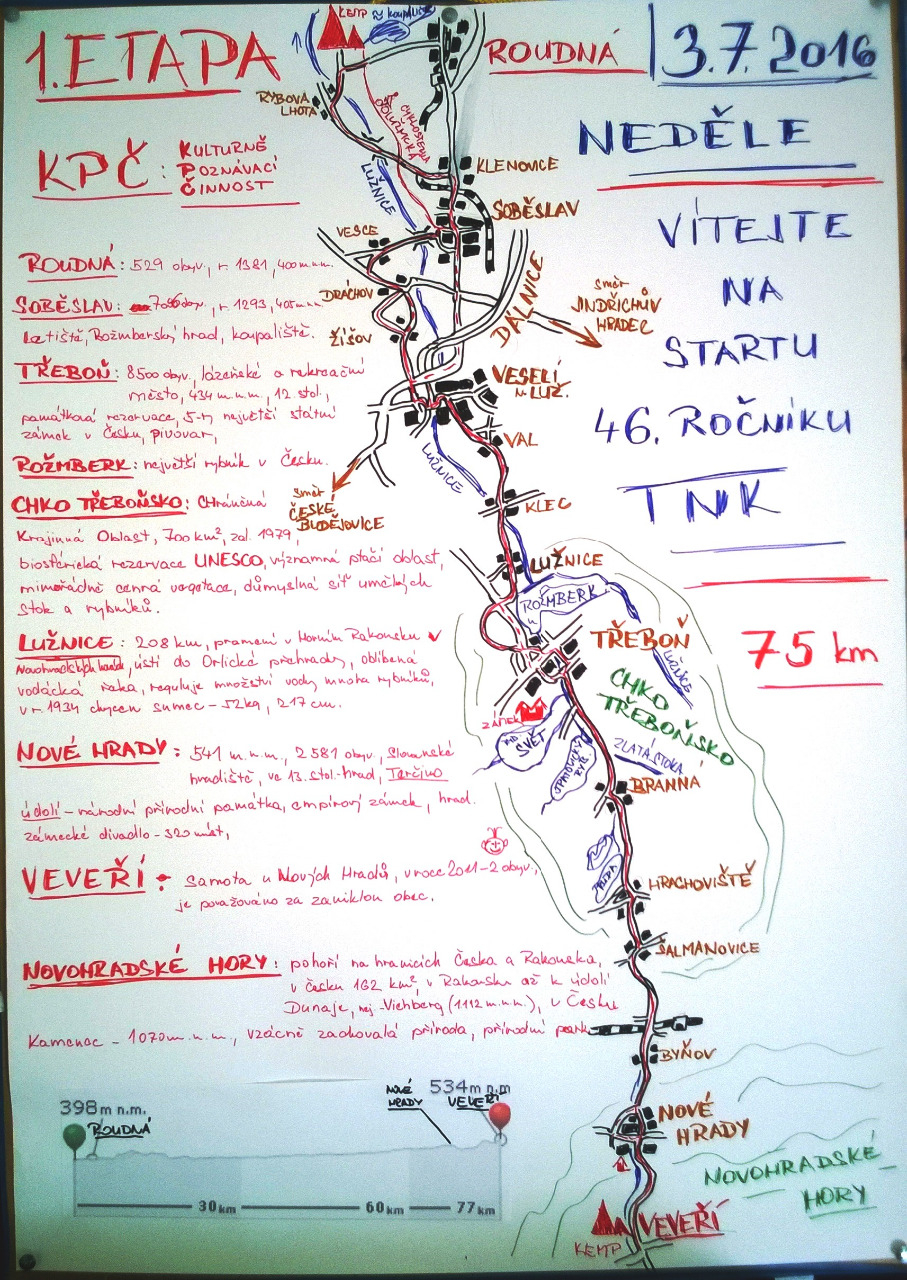 1. ETAPA
KEMP
≈ KOUPALIŠTĚ
ROUDNÁ
3.7.2016
NEDĚLE
VÍTEJTE
NA
STARTU
46. ROČNÍKU
TNK
75 km
KPČ: KULTURNĚ
POZNÁVACÍ
ČINNOST
ROUDNÁ: 529 obyv., r. 1381, 400 m.n.m.
SOBĚSLAV: 7096 obyv., r. 1293, 405 m.n.m.
Letiště, Rožmberský hrad, koupaliště.
TŘEBOŇ: 8500 obyv., lázeňské a rekreační
město, 434 m.n.m., 12. stol.,
památková rezervace, 5-tý největší státní
zámek v Česku, pivovar,
ROŽMBERK: největší rybník v Česku.
CHKO TŘEBOŇSKO: Chráněná
Krajinná Oblast, 700 km², zal. 1979,
biosférická rezervace UNESCO, významná ptačí oblast,
mimořádně cenná vegetace, důmyslná síť umělých
stok a rybníků.
LUŽNICE: 208 km, pramení v Horním Rakousku v
Novohradských horách, ústí do Orlické přehrady, oblíbená
vodácká řeka, reguluje množství vody mnoha rybníků,
v r. 1934 chycen sumec - 52kg, 217 cm.
NOVÉ HRADY: 541 m.n.m., 2581 obyv., Slovanské
hradiště, ve 13. stol. - hrad, Terčino
údolí - národní přírodní památka, empírový zámek, hrad.
zámecké divadlo - 320 míst,
VEVEŘÍ: Samota u Nových Hradů, v roce 2011 - 2 obyv.,
je považováno za zaniklou obec.
NOVOHRADSKÉ HORY: pohoří na hranicích Česka a Rakouska,
v Česku 162 km², v Rakousku až k údolí
Dunaje, nej. - Viehberg (1112 m.n.m.), v Česku
Kamenec - 1070 m.n.m., vzácně zachovalá příroda, přírodní park
RYBOVA
LHOTA
CYKLOSTEZKA
LUŽNICE
KLENOVICE
SOBĚSLAV
VESCE
DRÁCHOV
ŽÍŠOV
DÁLNICE
Směr
JINDŘICHŮV
HRADEC
VESELÍ
N. LUŽ.
VAL
LUŽNICE
Směr
ČESKÉ
BUDĚJOVICE
KLEC
LUŽNICE
ROŽMBERK
TŘEBOŇ
LUŽNICE
CHKO
TŘEBOŇSKO
ZÁMEK
SVĚT
ZLATÁ STOKA
BRANNÁ
HRACHOVIŠTĚ
ŠALMANOVICE
BYŇOV
NOVÉ
HRADY
NOVOHRADSKÉ
HORY
KEMP
VEVEŘÍ
398m n.m.
ROUDNÁ
NOVÉ
HRADY
534m n.m
VEVEŘÍ
30 km
60 km
77 km